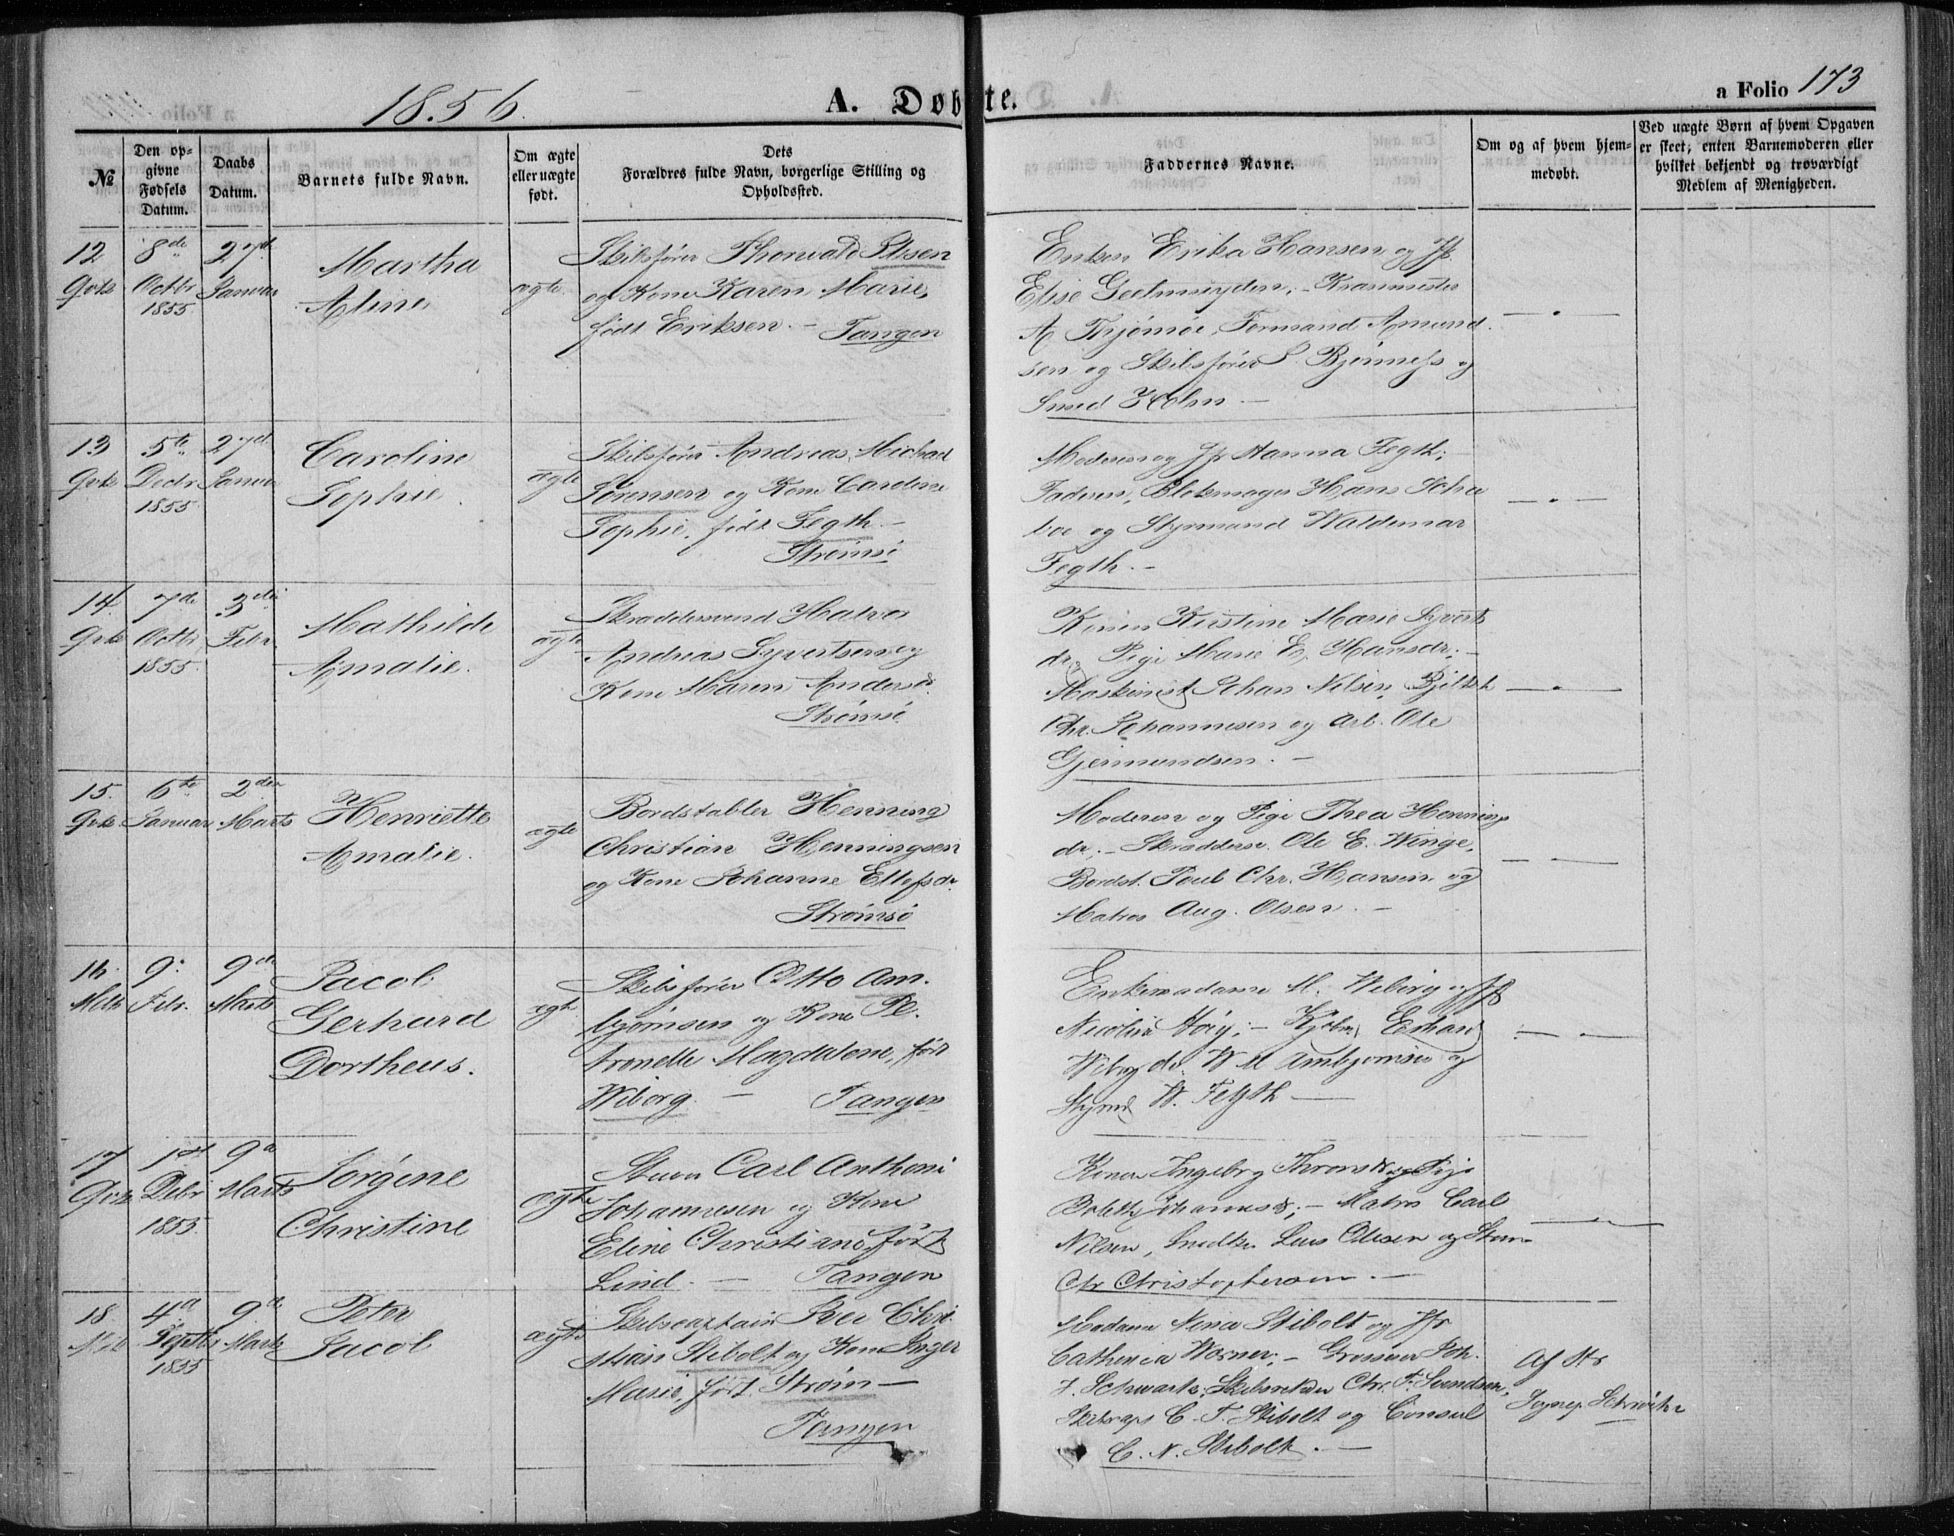 1856.
A. Døbte.
a Folio 173
№
Den opgivne Fødsels Datum.
Daabs Datum.
Barnets fulde Navn.
Om ægte eller uægte født.
Dets Forældres fulde Navn, borgerlige Stilling og Opholdssted.
Faddernes Navne.
Om og af hvem hjemmedøbt.
Ved uægte Børn af hvem Opgaven er skeet; enten Barnemoderen eller hvilket bekjendt og troværdigt Medlem af Menigheden.
12 8de 27d
Octbr Januar
1855
Martha
Aline
ægte
Skibsfører Thorvald Olsen
og Kone Karen Marie,
født Eriksen. – Tangen
Enken Erika Hansen og Jfr
Elise Geelmuyden, – Kranmester
A Thjømøe, Formand Amund-
sen og Skibsfører S. Bjønness og
Smed Holm. –
13 5te 27d
Decbr Januar
1855
Caroline
Sophie
ægte
Skibsfører Andreas Michael
Sørensen og Kone Caroline
Sophie, født Fegth. –
Strømsø
Moderen og Jfr Hanna Fegth;
Faderen, Blokmager Hans Scha
boe og Styrmand Waldemar
Fegth. –
14. 7de 3die
Octbr Febr
1855
Mathilde
Amalie.
ægte
Skræddersvend Halvor
Andreas Syvertsen og
Kone Maren Andersd.
Strømsø
Konen Kirstine Marie Syverts
dr, Pige Marie E. Hansdr; –
Maskinist Johan Nilsen,
Chr. Johannesen og Arb. Ole
Gjermundsen. –
15. 6te 2den
Januar Marts
Henriette
Amalie.
ægte
Bordstabler Henning
Christian Henningsen
og Kone Johanne Ellefsdr
Strømsø
Moderen og Pige Thea Hennings
dr; – Skræddersv. Ole E. Winge,
Bordst. Poul Chr. Hansen og
Matros Aug. Olsen. –
16. 9: 9de
Febr. Marts
Jacob
Gerhard
Dortheus.
ægte
Skibsfører Otto Am-
bjørnsen og Kone Pe-
tronelle Magdalene, født
Wiborg. – Tangen
Enkemadame M. Wiborg og Jfr
Nicoline Høeg; – Kjøbm. Erhard
Wiborg, do. W M Ambjørnsen og
Styrmd W. Fegth –
17 1st 9d
Debr Marts
1855
Jørgine
Christine
ægte
Stuer Carl Anthoni
Johannesen og Kone
Eline Christiane født
Lind. – Tangen
Kone Ingeborg Thronsd og Pige
Johannesd; – Matros Carl
Nilsen, Snedker Lars Olesen og Stuer
Chr Christophersen. –
18 4d 9de
Septbr Marts
1855
Peter
Jacob
ægte
Skibscaptain Iver Chri-
stian Stibolt og Kone Inger
Marie, født Strøm –
Tangen
Madame Nina Stibolt og Jfr
Cathinca Werner; – Grosserer Joh.
F. Schwartz, Skibsreder Chr. F. Svendsen,
Skibscap C. F. Stibolt og Consul
C. N. Stibolt. –
Af Hr
Sognep. Schrøder